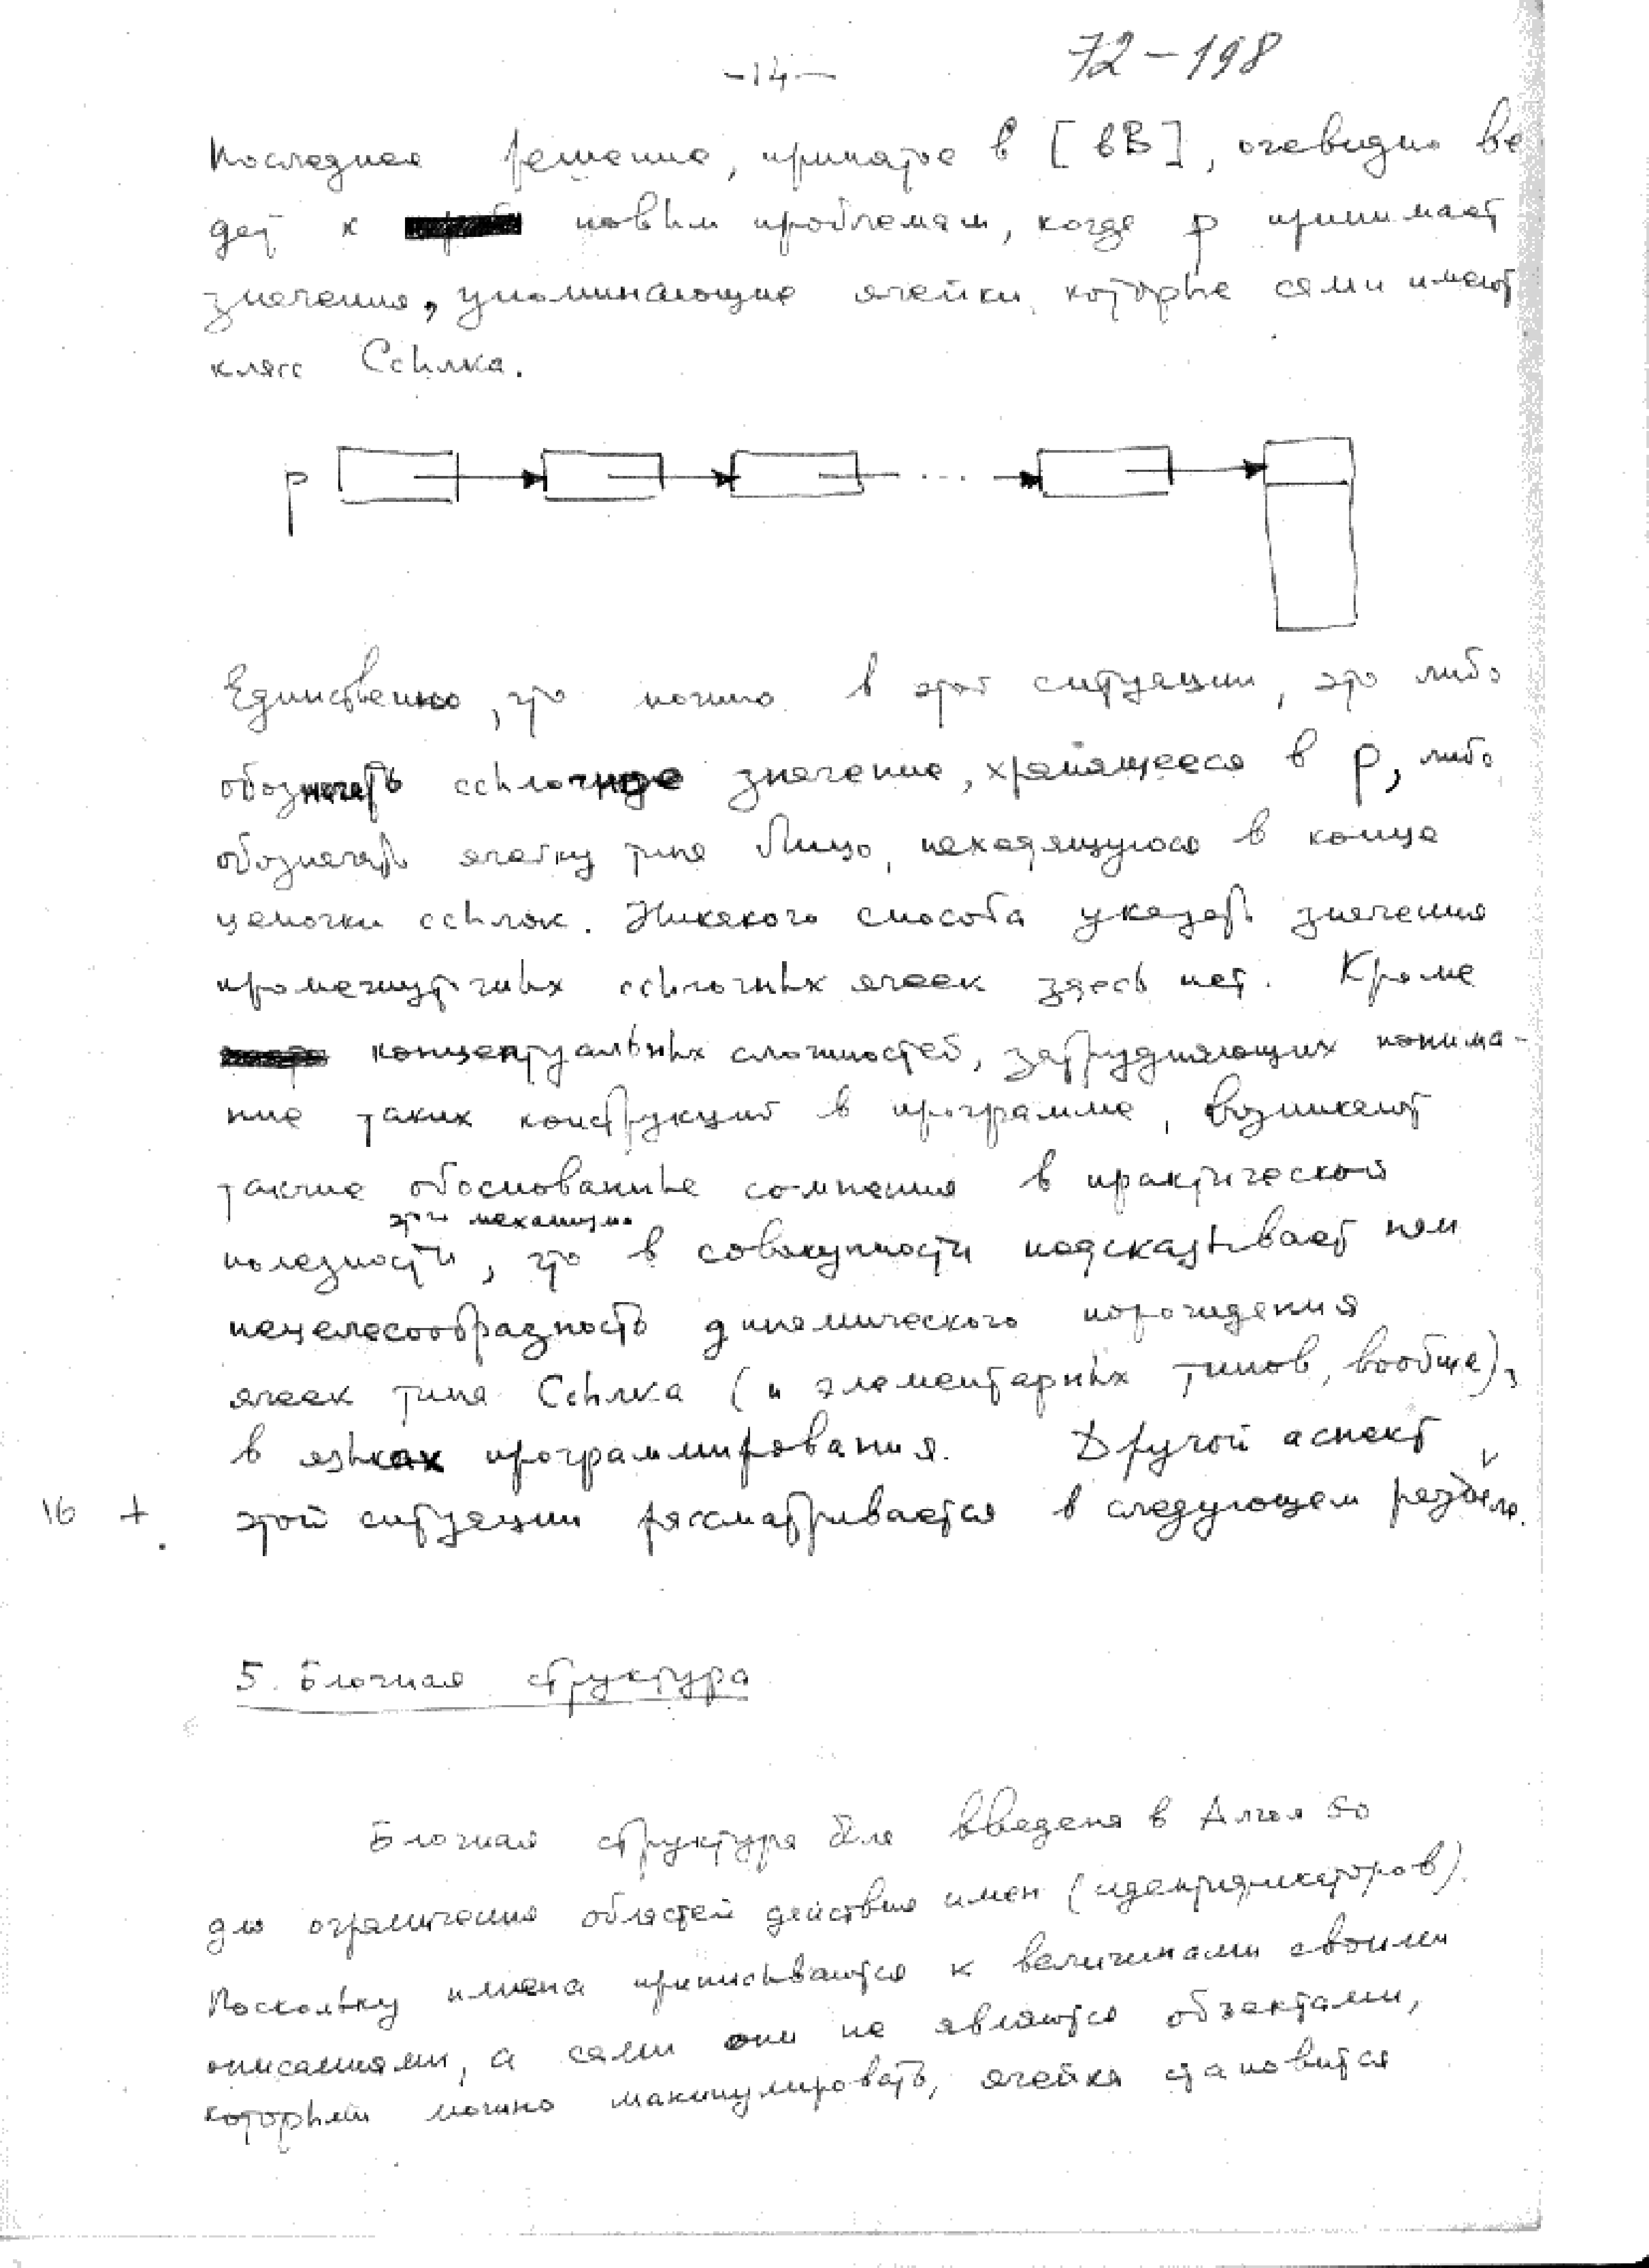 -14-
72-198
Последнее решение, принятое в [ВВ], очевидно ве
дет к новым проблемам, когда p принимает
значения, упоминающие ячейки, которые сами имеют
класс Ссылка.
p
...
Единственно, что можно в этой ситуации, это либо
обозначать ссылочное значение, хранящееся в p, либо
обозначать ячейку типа Лицо, находящуюся в конце
цепочки ссылок. Никакого способа указать значения
промежуточных ссылочных ячеек здесь нет. Кроме
концептуальных сложностей, затрудняющих понима-
ние таких конструкций в программе, возникают
также обоснованные сомнения в практической
этого механизма
полезности, что в совокупности подсказывает нам
нецелесообразность динамического порождения
ячеек типа Ссылка (и элементарных типов, вообще),
в языках программирования. Другой аспект
16 +. этой ситуации рассматривается в следующем разделе.
5. Блочная структура
Блочная структура была введена в Алгол 60
для ограничения областей действия имен (идентификаторов).
Поскольку имена приписываются к величинами своими
описаниями, а сами они не являются объектами,
которыми можно манипулировать, ячейка становится